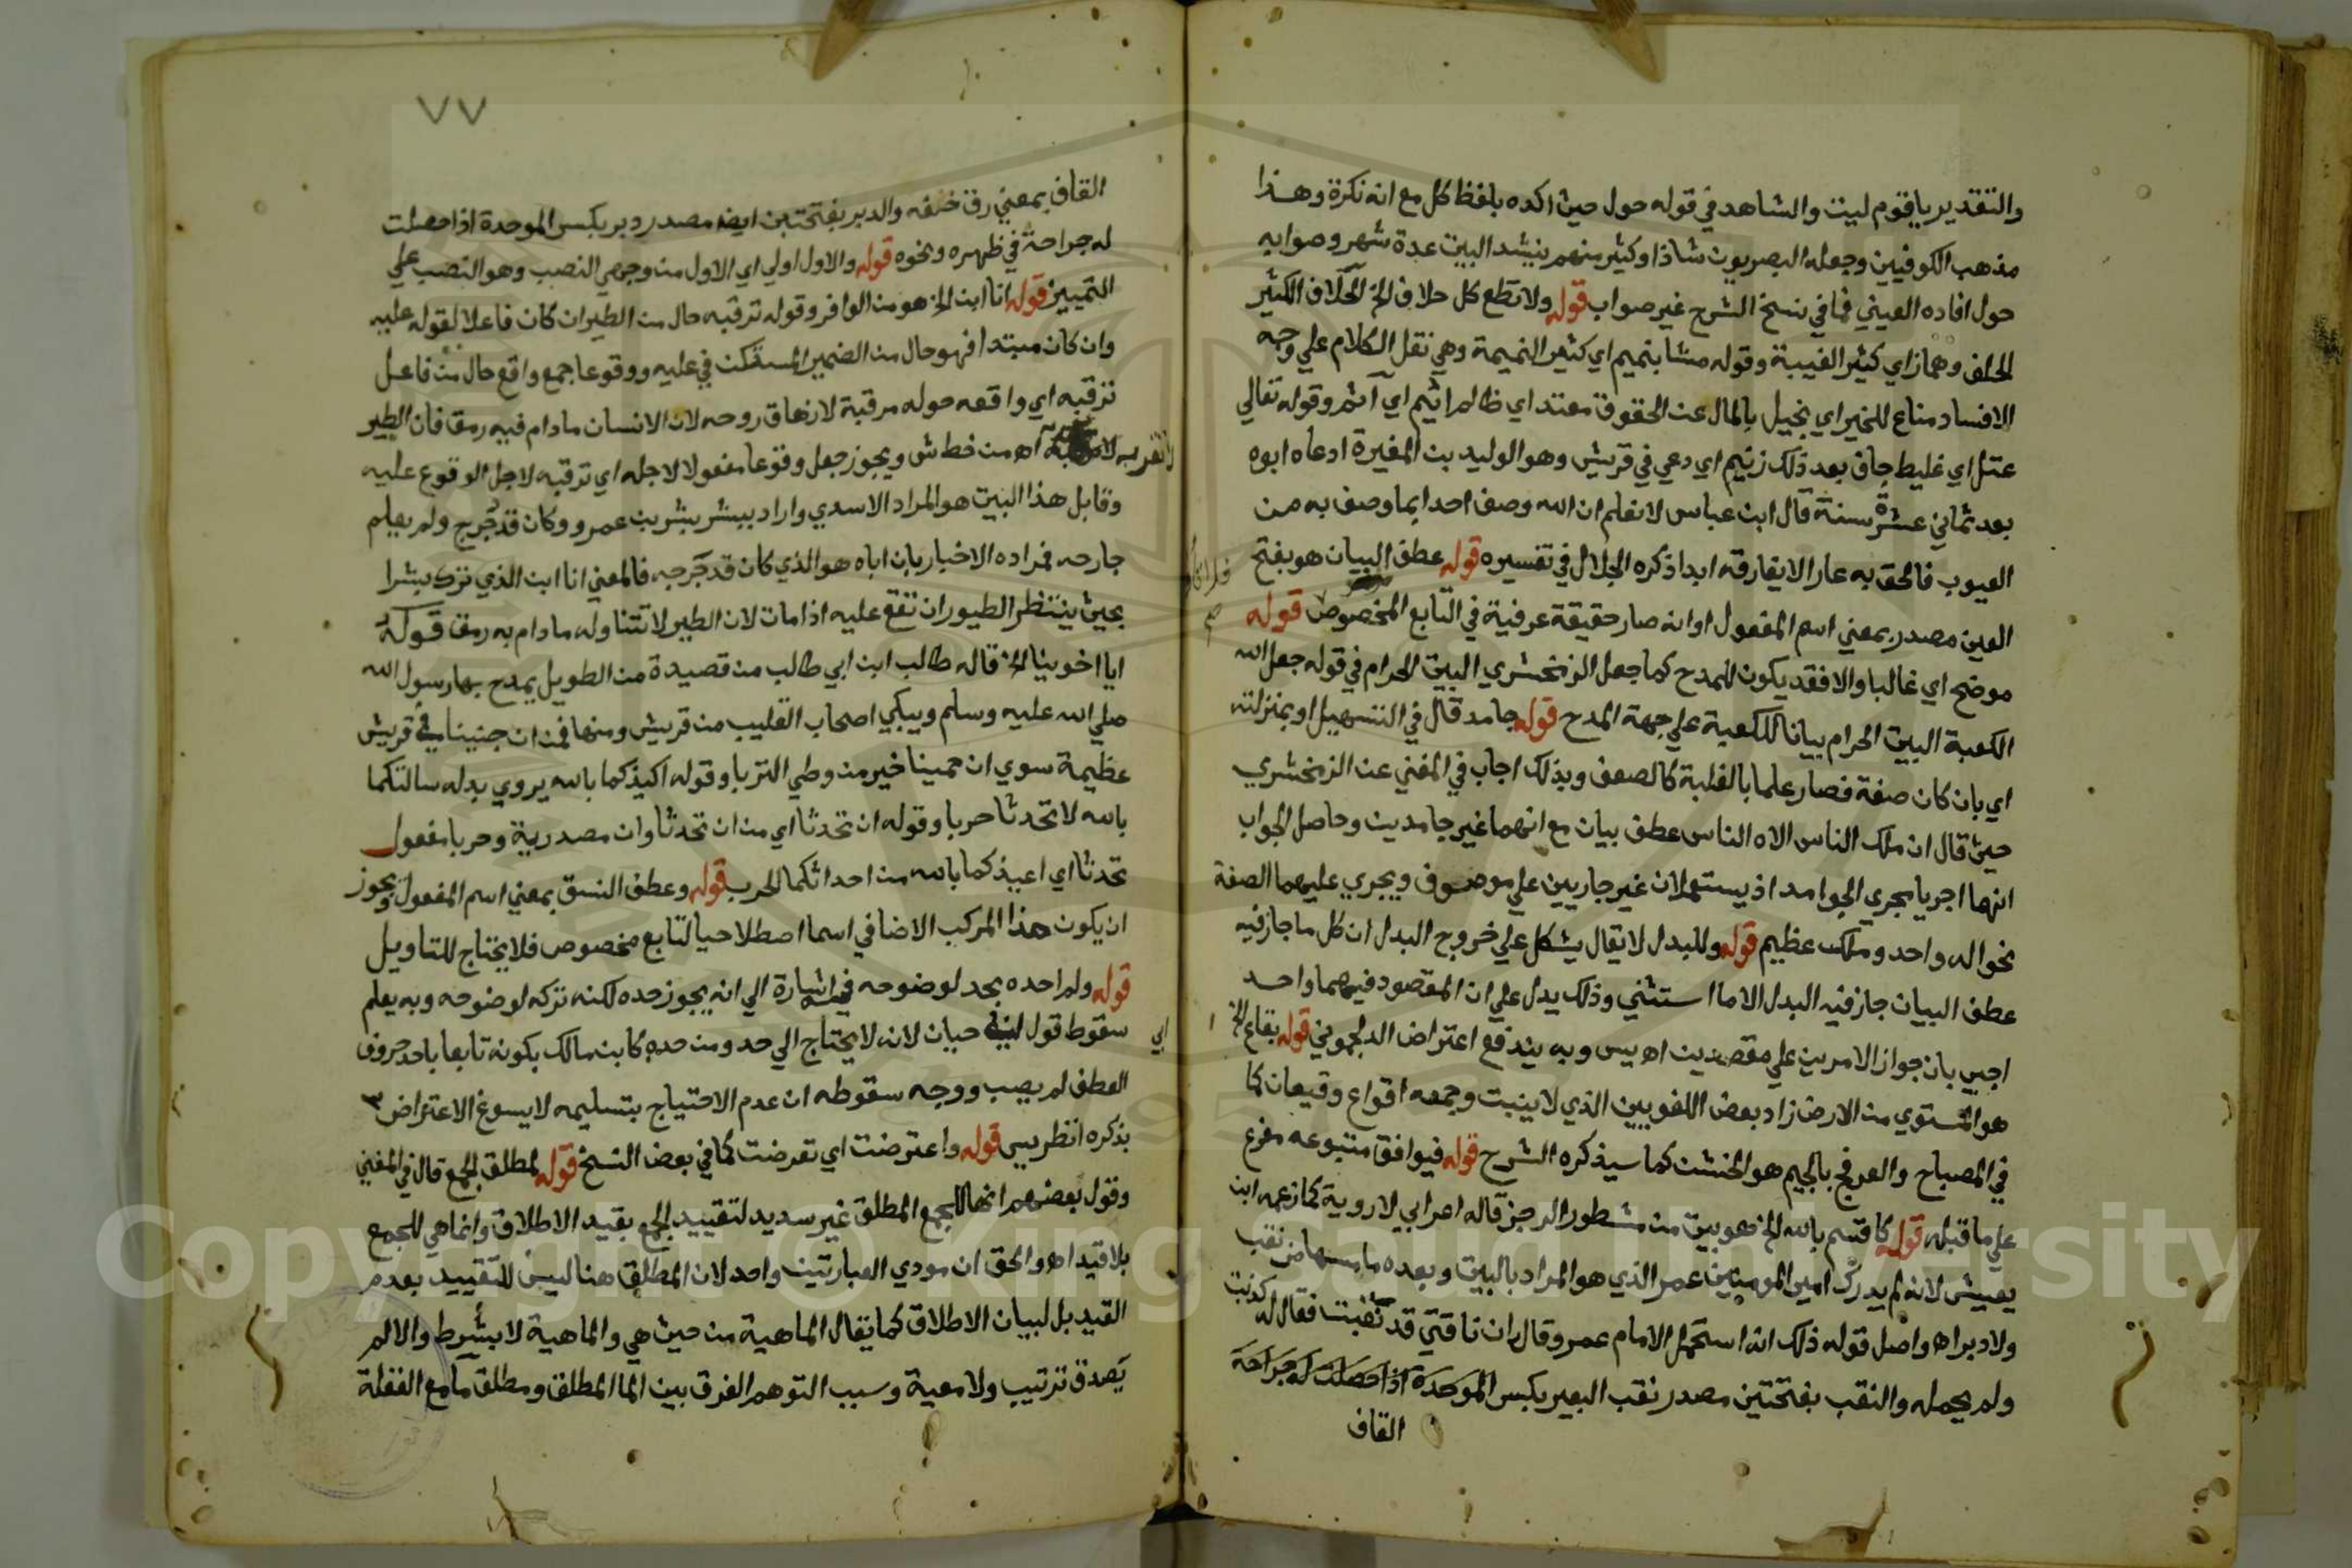 والتقدير ياقوم ليت والشاهد في قوله حول حيث اكده بلفظ كل مع انه نكرة وهذا
مذهب الكوفيين وجعله البصريون شاذا وكثير منهم ينشد البيت عدة شهر وصوابه
حول افاده العيني فما في نسخ الشرح غير صواب قوله ولا تطع كل حلاف الخ الحلاف الكثير
الحلف وهماز اي كثير الغيبة وقوله مشا بنميم اي كثير النميمة وهي نقل الكلام علي وجه
الافساد مناع للخير اي بخيل بالمال عن الحقوق معتد اي ظالم اثيم اي آثم وقوله تعالي
عتل اي غليط جاف بعد ذلك زنيم اي دعي في قريش وهو الوليد بن المغيرة ادعاه ابوه
بعد ثماني عشرة سنة قال ابن عباس لا نعلم ان الله وصف احدا بما وصف به من
العيوب فالحق به عارا لا يفارقه ابدا ذكره الجلال في تفسيره قوله عطف البيان هو بفتح
العين مصدر بمعني اسم المفعول او انه صار حقيقة عرفية في التابع المخصوص قوله
موضح اي غالبا والا فقد يكون للمدح كما جعل الزمخشري البيت الحرام في قوله جعل الله
الكعبة البيت الحرام بيانا للكعبة علي جهة المدح قوله جامد قال في التسهيل او بمنزلته
اي بان كان صفة فصار علما بالغلبة كالصعق وبذلك اجاب في المغني عن الزمخشري
حيث قال ان ملك الناس الاه الناس عطف بيان مع انهما غير جامدين وحاصل الجواب
انهما اجريا مجري الجوامد اذ يستعملان غير جاريين علي موصوف ويجري عليهما الصفة
نحو اله واحد وملك عظيم قوله وللبدل لا يقال يشكل علي خروج البدل ان كل ما جاز فيه
عطف البيان جاز فيه البدل الا ما استثني وذلك يدل علي ان المقصود فيهما واحد
اجيب بان جواز الامرين علي مقصدين اه يس وبه يندفع اعتراض الدلجموني قوله بقاع الخ
هو المستوي من الارض زاد بعض اللغويين الذي لا ينبت وجمعه اقواع وقيعان كما
في المصباح والعرفج بالجيم هو الخشن كما سيذكره الشرح قوله فيوافق متبوعه مفرع
علي ما قبله قوله كاقسم بالله الخ هو بيت من مشطور الرجز قاله اعرابي لا روبة كما زعمه ابن
يعيش لانه لم يدرك امير المومنين عمر الذي هو المراد بالبيت وبعده ما مسها من نقب
ولا دبر اه واصل قوله ذلك انه استحمل الامام عمر وقال ان ناقتي قد نقبت فقال له كذبت
ولم يحمله والنقب بفتحتين مصدر نقب البعير بكسر الموحدة اذا حصلت له جراحة
القاف
٧٧
القاف بمعني رق خفه والدبر بفتحتين ايضا مصدر دبر بكسر الموحدة اذا حصلت
له جراحة في ظهره ونحوه قوله والاول اولي اي الاول من وجهي النصب وهو النصب علي
التمييز قوله انا ابن الخ هو من الوافر وقوله ترقبه حال من الطير ان كان فاعلا لقوله عليه
وان كان مبتدا فهو حال من الضمير المستكن في عليه ووقوعا جمع واقع حال من فاعل
ترقبه اي واقعه حوله مرقبة لازهاق روحه لان الانسان ما دام فيه رمق فان الطير
لا تقربه اه من خط ش ويجوز جعل وقوعا مفعولا لاجله اي ترقبه لاجل الوقوع عليه
وقابل هذا البيت هو المراد الاسدي واراد ببشر بشر بن عمرو وكان قد جرح ولم يعلم
جارحه فمراده الاخبار بان اباه هو الذي كان قد جرحه فالمعني انا ابن الذي ترك بشرا
بحيث ينتظر الطيور ان تقع عليه اذا مات لان الطير لا تتناوله ما دام به رمق قوله
ايا اخوينا الخ قاله طالب ابن ابي طالب من قصيدة من الطويل يمدح بها رسول الله
صلي الله عليه وسلم ويبكي اصحاب القليب من قريش ومنها فما ان جنينا في قريش
عظيمة سوي ان حمينا خير من وطي التربا وقوله اعيذكما بالله يروي بدله سالتكما
بالله لا تحدثا حربا وقوله ان تحدثا اي من ان تحدثا وان مصدرية وحربا مفعول
تحدثا اي اعيذكما بالله من احداثكما الحرب قوله وعطف النسق بمعني اسم المفعول ويجوز
ان يكون هذا المركب الاضافي اسما اصطلاحيا لتابع مخصوص فلا يحتاج للتاويل
قوله ولم احده بحد لوضوحه فيه اشارة الي انه يجوز حده لكنه تركه لوضوحه وبه يعلم
سقوط قول ابي حيان لانه لا يحتاج الي حد ومن حده كابن مالك بكونه تابعا باحد حروف
العطف لم يصب ووجه سقوطه ان عدم الاحتياج بتسليمه لا يسوغ الاعتراض
بذكره انظر يس قوله واعترضت اي تعرضت كما في بعض النسخ قوله لمطلق الجمع قال في المغني
وقول بعضهم انها للجمع المطلق غير سديد لتقييد الجمع بقيد الاطلاق وانما هي للجمع
بلا قيد اه والحق ان مودي العبارتين واحد لان المطلق هنا ليس للتقييد بعدم
القيد بل لبيان الاطلاق كما يقال الماهية من حيث هي والماهية لا بشرط والا لم
يصدق ترتيب ولا معية وسبب التوهم الفرق بين الما المطلق ومطلق ما مع الغفلة
Copyright © King Saud University